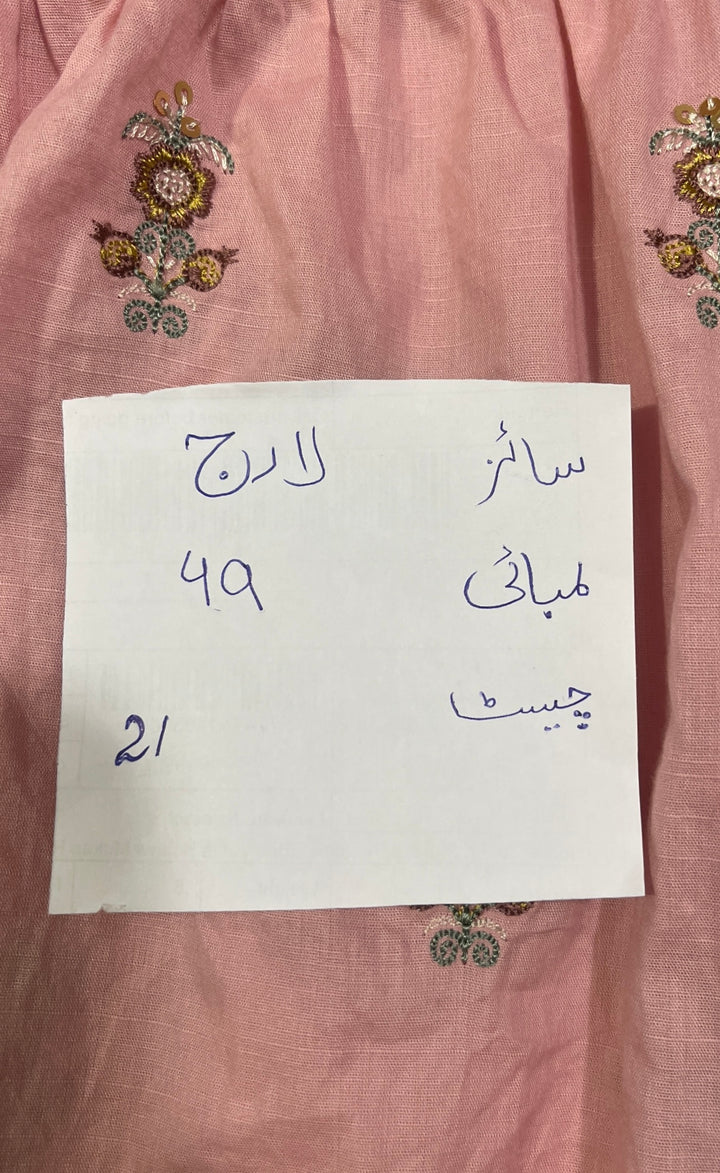 سائز لارج
لمبائی 49
چیسٹ
21